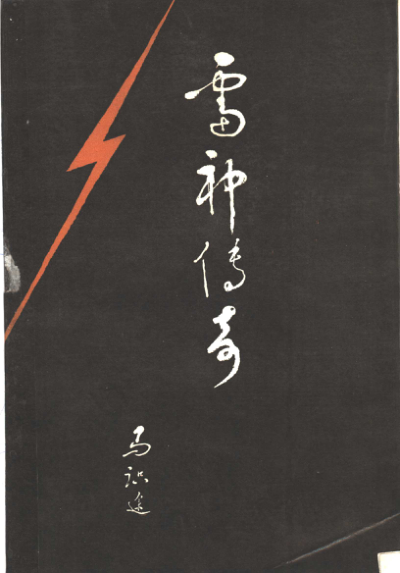 雷神传奇
马识途